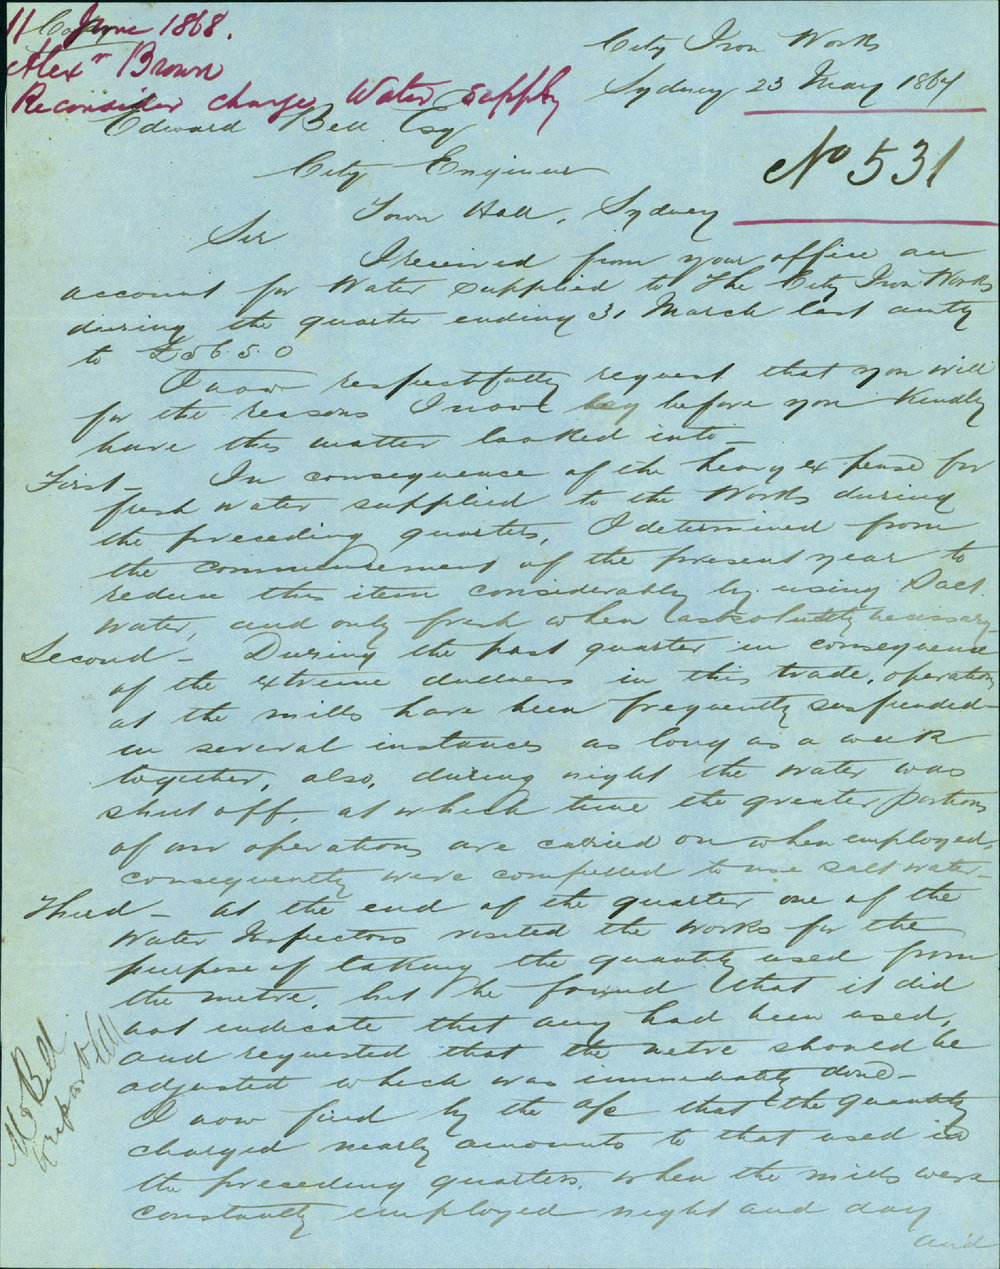 Copy
11 June 1868.
Alexr Brown
Reconsider charge Water supply
City Iron Works
Sydney 23 May 1867
No 531
Edward Bell Esq
City Engineer
Town Hall, Sydney
Sir
I received from your office an
account for Water supplied to The City Iron Works
during the quarter ending 31 March last amtg
to £56.5.0
I now respectfully request that you will
for the reasons I now lay before you Kindly
have this matter looked into -
First - In consequence of the heavy expense for
fresh water supplied to the Works during
the preceding quarters, I determined from
the commencement of the present year to
reduce this item considerably by using Salt
water, and only fresh when absolutely necessary
Second - During the past quarter in consequence
of the extreme dullness in this trade, operations
at the mills have been frequently suspended -
in several instances as long as a week
together, also, during night the water was
shut off, at which time the greater portions
of our operations are carried on when employed,
consequently were compelled to use salt water -
Third - At the end of the quarter one of the
Water Inspectors visited the works for the
purpose of taking the quantity used from
the metre, but he found that it did
not indicate that any had been used,
and requested that the metre should be
adjusted which was immediately done -
I now find by the a/c that the quantity
charged nearly amounts to that used in
the preceding quarters, when the mills were
constantly employed night and day
and
Mr Bell